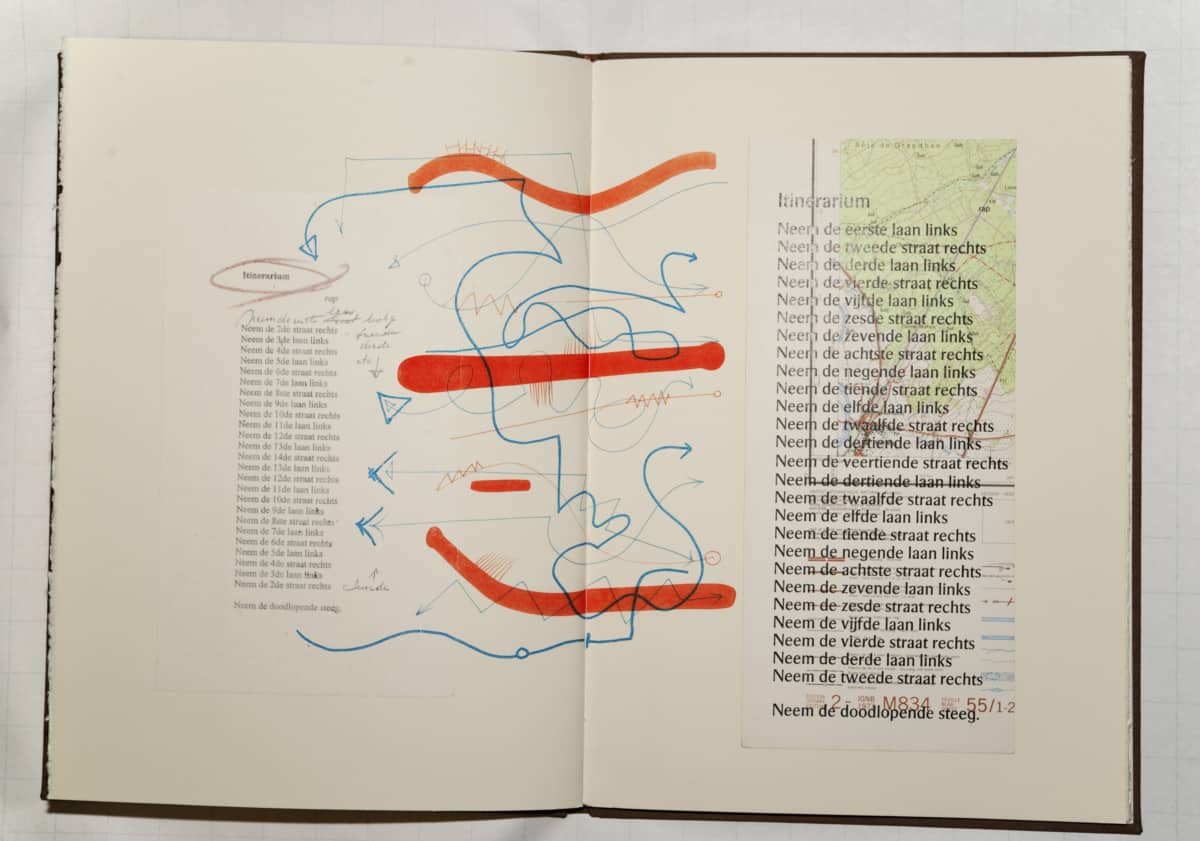 Itinerarium
rap
Neem de 2de straat rechts
Neem de 3de laan links
Neem de 4de straat rechts
Neem de 5de laan links
Neem de 6de straat rechts
Neem de 7de laan links
Neem de 8ste straat rechts
Neem de 9de laan links
Neem de 10de straat rechts
Neem de 11de laan links
Neem de 12de straat rechts
Neem de 13de laan links
Neem de 14de straat rechts
Neem de 13de laan links
Neem de 12de straat rechts
Neem de 11de laan links
Neem de 10de straat rechts
Neem de 9de laan links
Neem de 8ste straat rechts
Neem de 7de laan links
Neem de 6de straat rechts
Neem de 5de laan links
Neem de 4de straat rechts
Neem de 3de laan links
Neem de 2de straat rechts
Neem de doodlopende steeg.
Itinerarium
rap
Neem de eerste laan links
Neem de tweede straat rechts
Neem de derde laan links
Neem de vierde straat rechts
Neem de vijfde laan links
Neem de zesde straat rechts
Neem de zevende laan links
Neem de achtste straat rechts
Neem de negende laan links
Neem de tiende straat rechts
Neem de elfde laan links
Neem de twaalfde straat rechts
Neem de dertiende laan links
Neem de veertiende straat rechts
Neem de dertiende laan links
Neem de twaalfde straat rechts
Neem de elfde laan links
Neem de tiende straat rechts
Neem de negende laan links
Neem de achtste straat rechts
Neem de zevende laan links
Neem de zesde straat rechts
Neem de vijfde laan links
Neem de vierde straat rechts
Neem de derde laan links
Neem de tweede straat rechts
2- IGNB M834 55/1-2
Neem de doodlopende steeg.